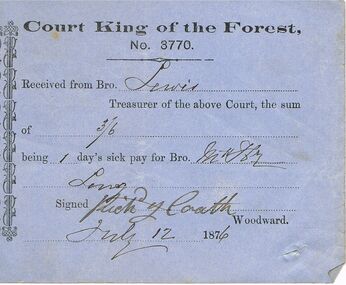 Court King of the Forest,
No. 3770.
Received from Bro. Lewis
Treasurer of the above Court, the sum
of 3/6
being 1 day's sick pay for Bro.
Long
Signed Rich'd
Woodward.
July 12 1876